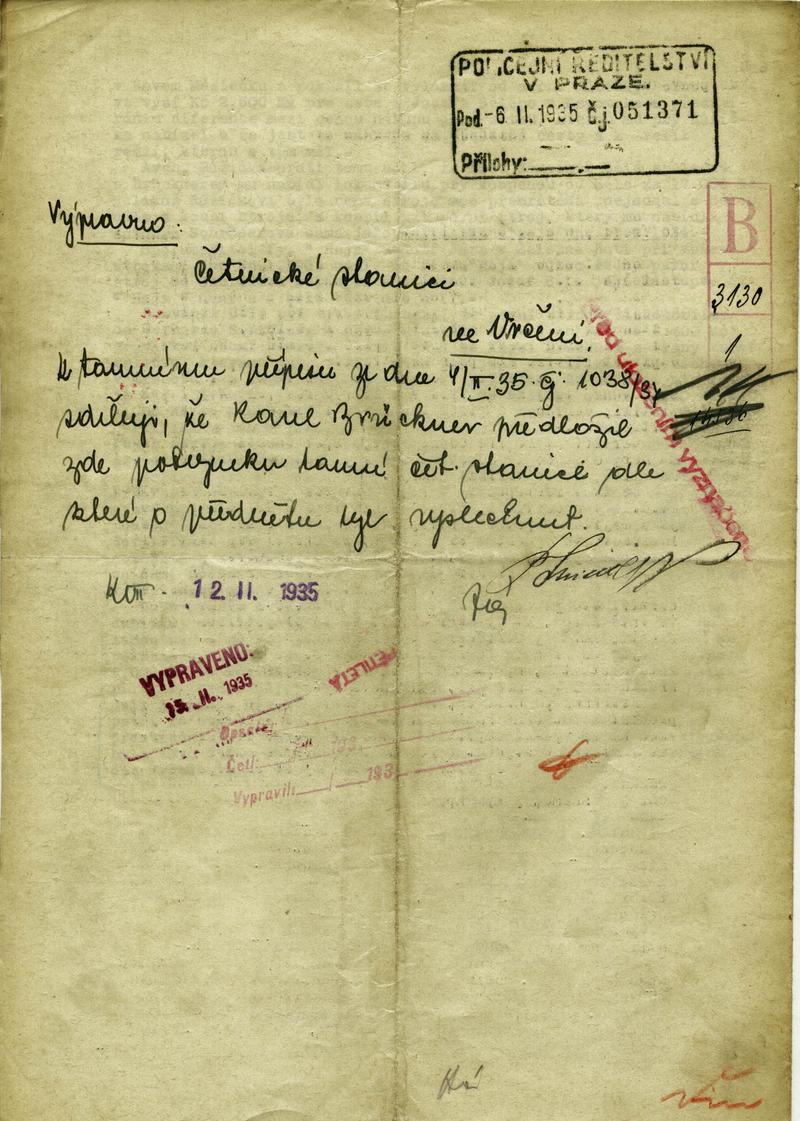 POLICEJNÍ ŘEDITELSTVÍ
V PRAZE.
Pod. -6 II. 1935 Č.j. 051371
Přílohy:
B
3130
1
Výpravno:
Četnické stanici
ve Vrčeni.
K tamnímu přípisu ze dne 4/II. 35. čj. 1038/34
sděluji, že Karel Brückner předložil
zde potvrzenku tamní čet. stanice dle
které o předmětu byl vyslechnut.
12. II. 1935
VYPRAVENO:
15. II. 1935
PĚTILETÁ
Opsal:
Četl: 193
Vypravil: 193